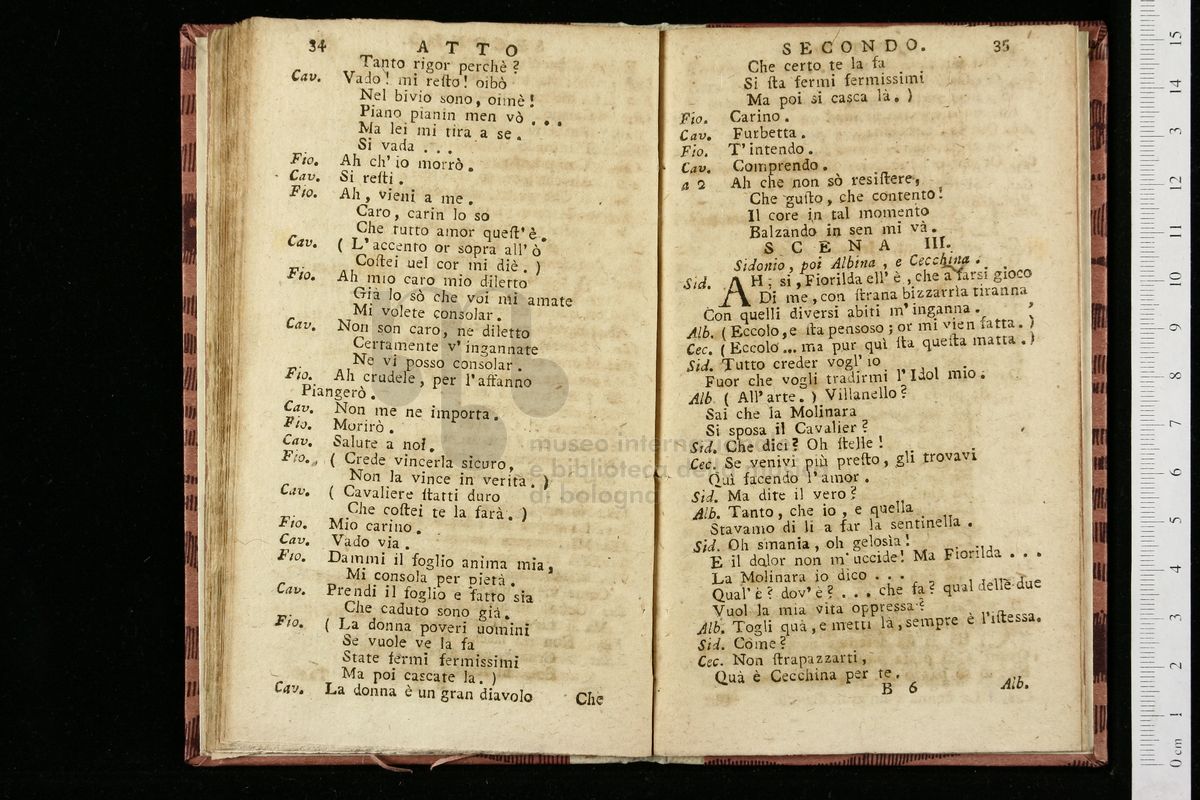 34 ATTO
Tanto rigor perchè?
Cav. Vado! mi reſto! oibò
Nel bivio sono, oimè!
Piano pianin men vò ...
Ma lei mi tira a se.
Si vada ...
Fio. Ah ch' io morrò.
Cav. Si reſti.
Fio. Ah, vieni a me.
Caro, carin lo so
Che tutto amor queſt' è.
Cav. ( L'accento or sopra all' ò
Coſtei uel cor mi diè. )
Fio. Ah mio caro mio diletto
Già lo sò che voi mi amate
Mi volete consolar.
Cav. Non son caro, ne diletto
Certamente v' ingannate
Ne vi posso consolar.
Fio. Ah crudele, per l'affanno
Piangerò.
Cav. Non me ne importa.
Fio. Morirò.
Cav. Salute a noi.
Fio. ( Crede vincerla sicuro,
Non la vince in verita. )
Cav. ( Cavaliere ſtatti duro
Che coſtei te la farà. )
Fio. Mio carino.
Cav. Vado via.
Fio. Dammi il foglio anima mia,
Mi consola per pietà.
Cav. Prendi il foglio e fatto sia
Che caduto sono già.
Fio. ( La donna poveri uomini
Se vuole ve la fa
State fermi fermissimi
Ma poi cascate la. )
Cav. La donna è un gran diavolo
Che
SECONDO. 35
Che certo te la fa
Si ſta fermi fermissimi
Ma poi si casca là. )
Fio. Carino.
Cav. Furbetta.
Fio. T' intendo.
Cav. Comprendo.
a 2 Ah che non sò resiſtere,
Che guſto, che contento!
Il core in tal momento
Balzando in sen mi và.
SCENA III.
Sidonio, poi Albina, e Cecchina.
Sid. AH; si, Fiorilda ell' è, che a farsi gioco
Di me, con ſtrana bizzarrìa tiranna
Con quelli diversi abiti m' inganna.
Alb. ( Eccolo, e ſta pensoso; or mi vien fatta. )
Cec. ( Eccolo ... ma pur quì ſta queſta matta. )
Sid. Tutto creder vogl' io
Fuor che vogli tradirmi l' Idol mio.
Alb. ( All' arte. ) Villanello?
Sai che la Molinara
Si sposa il Cavalier?
Sid. Che dici? Oh ſtelle!
Cec. Se venivi più preſto, gli trovavi
Quì facendo l'amor.
Sid. Ma dite il vero?
Alb. Tanto, che io, e quella
Stavamo di lì a far la sentinella.
Sid. Oh smania, oh gelosìa!
E il dolor non m' uccide! Ma Fiorilda ...
La Molinara io dico ...
Qual' è? dov' è? ... che fa? qual delle due
Vuol la mia vita oppressa?
Alb. Togli quà, e metti là, sempre è l'iſtessa.
Sid. Come?
Cec. Non ſtrapazzarti,
Quà è Cecchina per te.
B 6 Alb.
museo internazionale
e biblioteca della musica
di bologna
0 cm 1 2 3 4 5 6 7 8 9 10 11 12 13 14 15